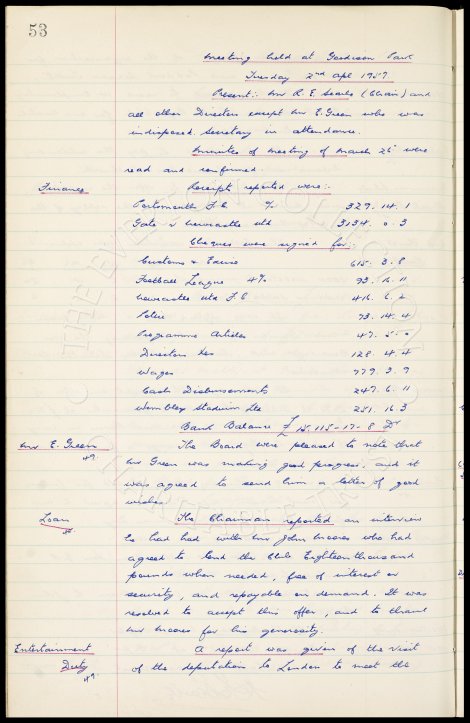 53
Meeting held at Goodison Park
Tuesday 2nd Apl 1957
Present:- Mr R. E. Searle (Chair) and
all other Directors except Mr E. Green who was
indisposed. Secretary in attendance.
Minutes of meeting of March 26 were
read and confirmed.
Finance Receipts reported were:-
Portsmouth F.C % 327. 14. 1
Gate v Newcastle Utd 3134. 0. 3
Cheques were signed for:-
Customs & Excise 615. 3. 8
Football League 4% 93. 16. 11
Newcastle Utd F.C 416. 6. 2
Police 73. 14. 4
Programme Articles 47. 5. 0
Directors Exs 128. 4. 4
Wages 779. 3. 9
Cash Disbursements 247. 6. 11
Wembley Stadium Ltd 251. 16. 3
Bank Balance £ 15,115-17-8 Dr
Mr E. Green The Board were pleased to note that
Mr Green was making good progress, and it
was agreed to send him a letter of good
wishes.
Loan The Chairman reported an interview
he had had with Mr John Moores who had
agreed to lend the Club Eighteen thousand
pounds when needed, free of interest or
security, and repayable on demand. It was
resolved to accept this offer, and to thank
Mr Moores for his generosity.
Entertainment A report was given of the visit
Duty of the deputation to London to meet the
THE EVERTON COLLECTION
CHARITABLE TRUST